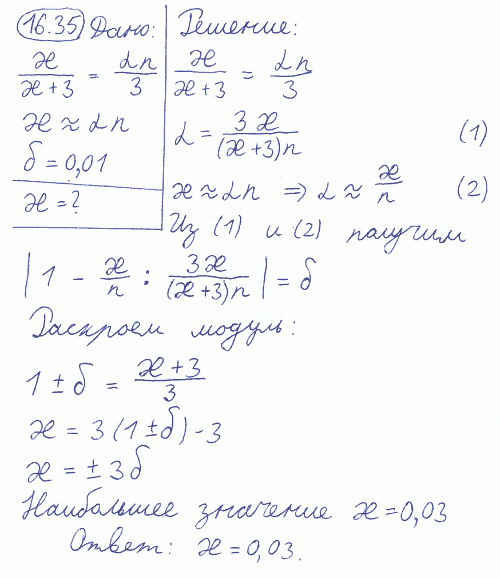 16.35 Дано:
æ/(æ+3) = αn/3
æ ≈ αn
δ = 0,01
æ = ?
Решение:
æ/(æ+3) = αn/3
α = 3æ/((æ+3)n) (1)
æ ≈ αn ⇒ α ≈ æ/n (2)
Из (1) и (2) получим
|1 - æ/n : 3æ/((æ+3)n)| = δ
Раскроем модуль:
1 ± δ = (æ+3)/3
æ = 3(1±δ)-3
æ = ±3δ
Наибольшее значение æ=0,03
Ответ: æ=0,03.